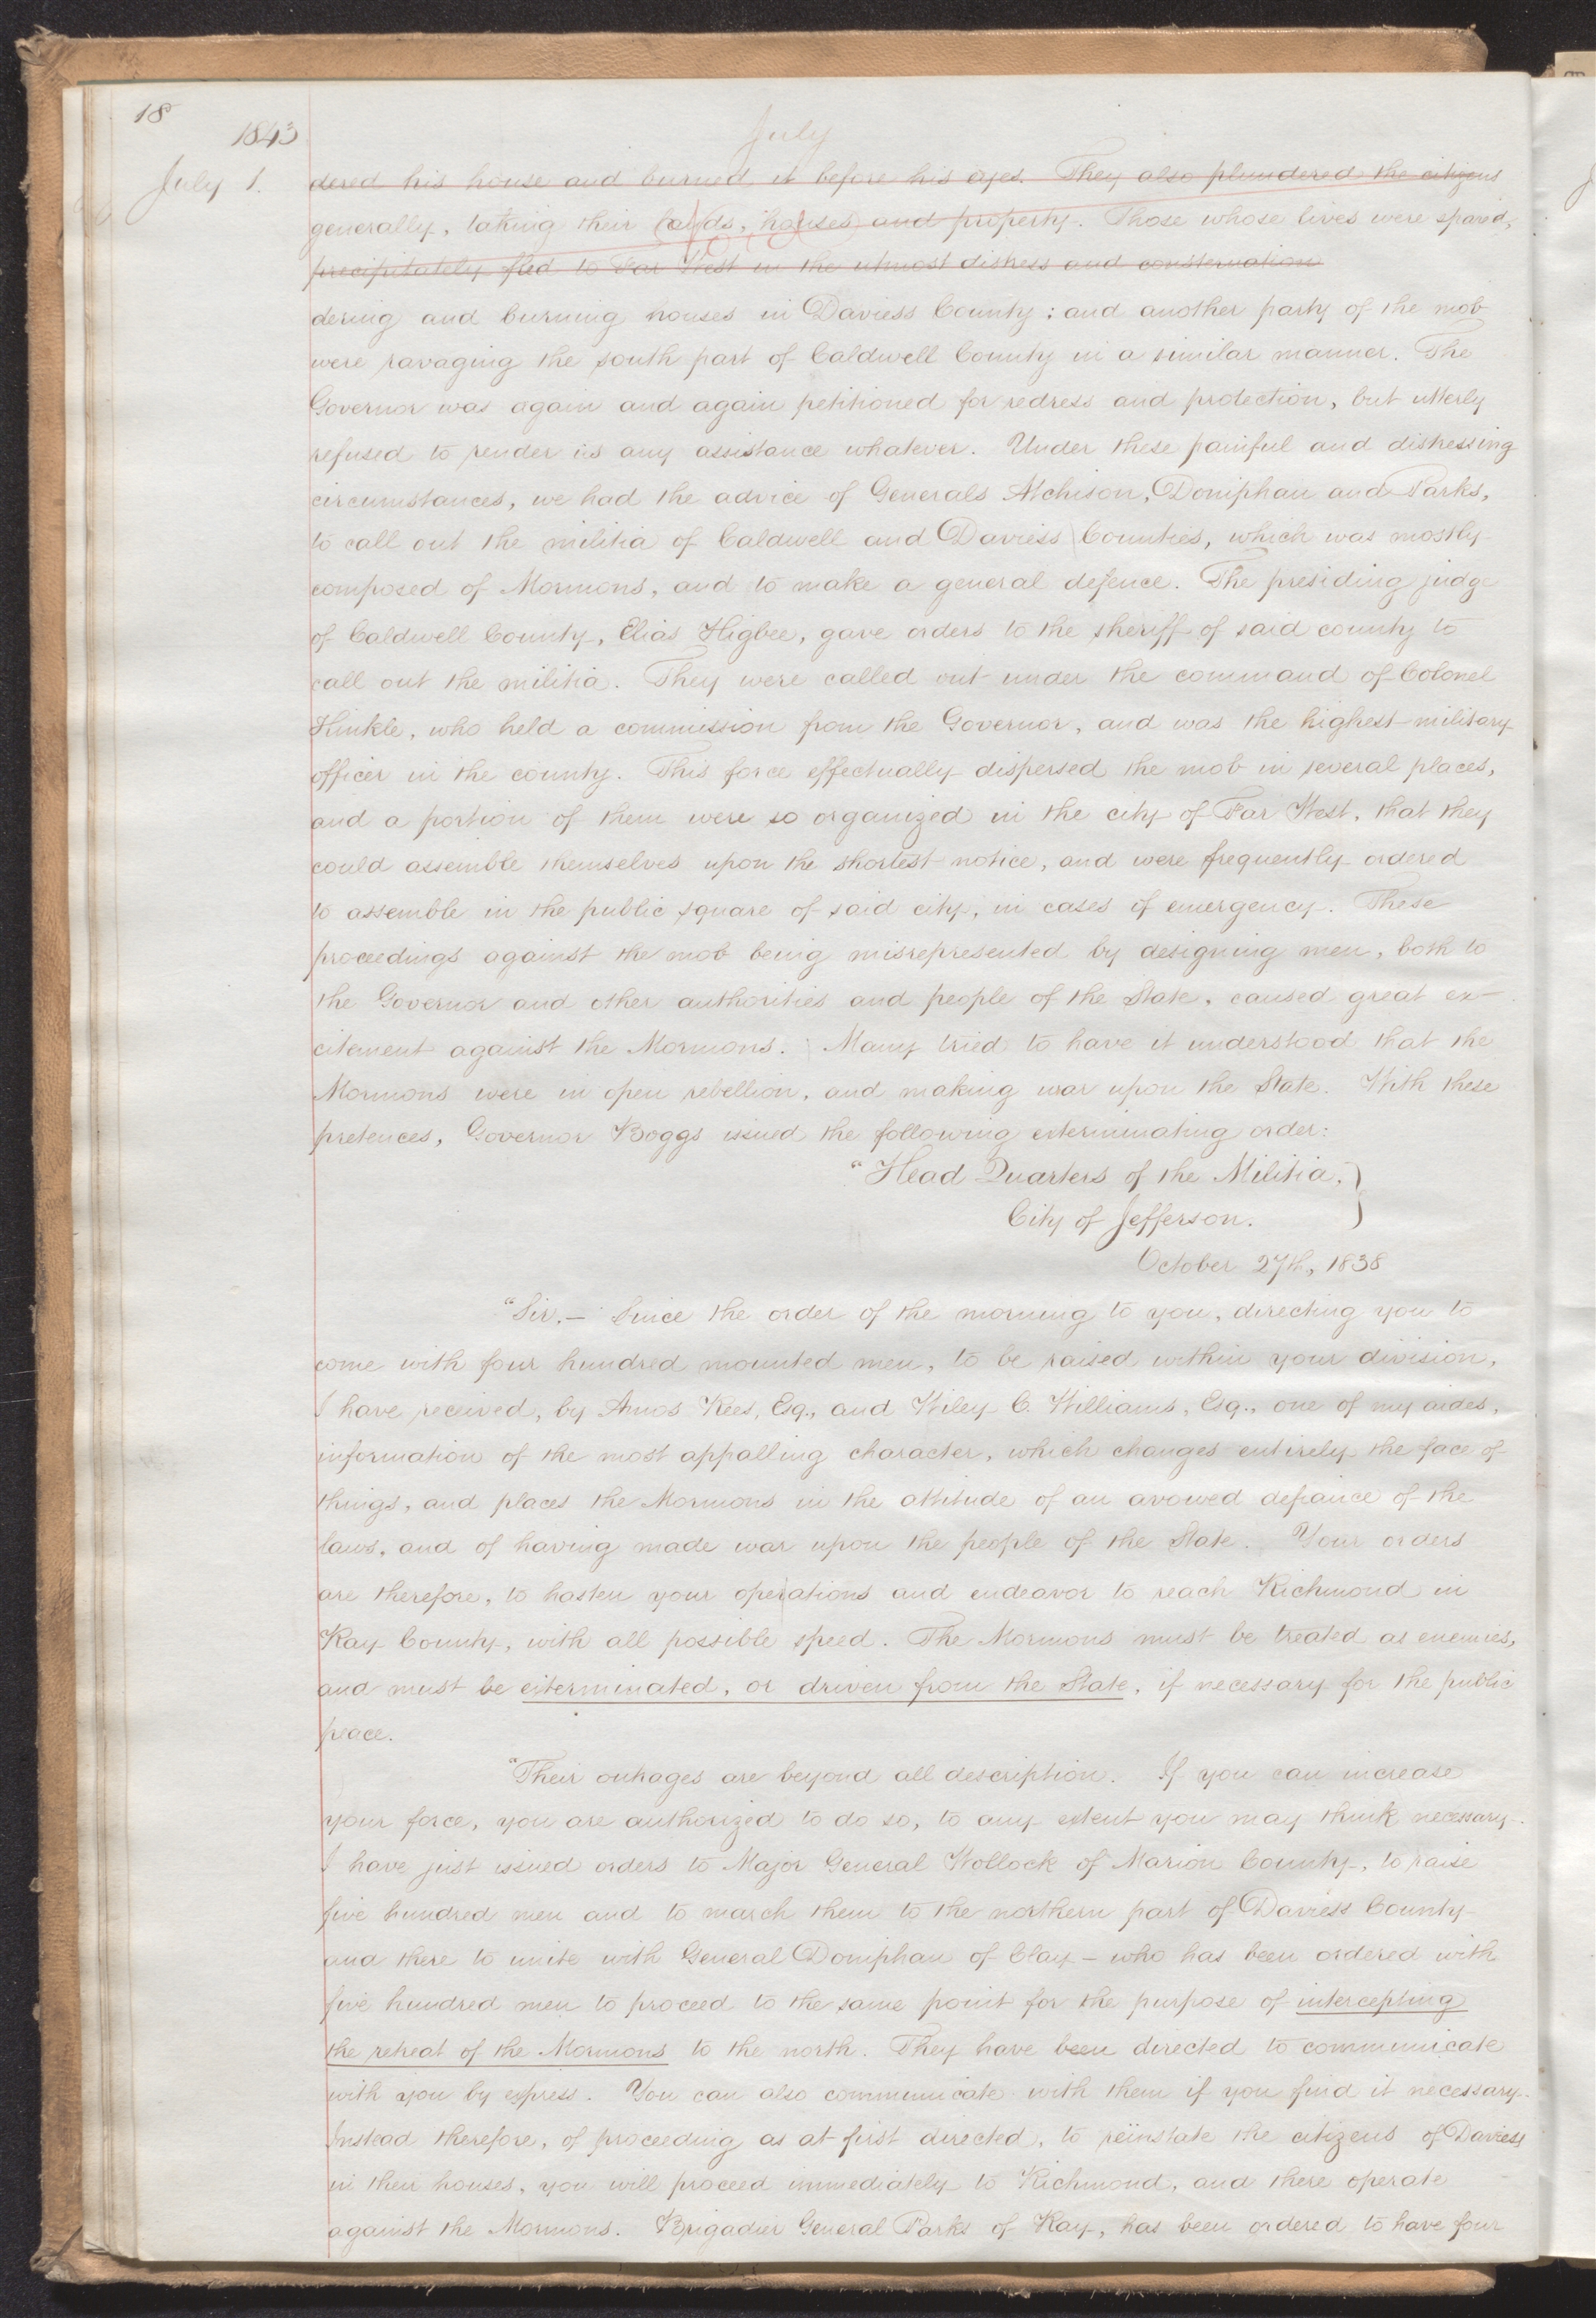 18
1843
July
July 1.
dered his house and burned it before his eyes. They also plundered the citizens
generally, taking their beds, houses and property. Those whose lives were spared,
precipitately fled to Far West in the utmost distress and consternation
dering and burning houses in Daviess County; and another party of the mob
were ravaging the south part of Caldwell County in a similar manner. The
Governor was again and again petitioned for redress and protection, but utterly
refused to render us any assistance whatever. Under these painful and distressing
circumstances, we had the advice of Generals Atchison, Doniphan and Parks,
to call out the militia of Caldwell and Daviess Counties, which was mostly
composed of Mormons, and to make a general defence. The presiding judge
of Caldwell County, Elias Higbee, gave orders to the sheriff of said county to
call out the militia. They were called out under the command of Colonel
Hinkle, who held a commission from the Governor, and was the highest military
officer in the county. This force effectually dispersed the mob in several places,
and a portion of them were so organized in the city of Far West, that they
could assemble themselves upon the shortest notice, and were frequently ordered
to assemble in the public square of said city, in cases of emergency. These
proceedings against the mob being misrepresented by designing men, both to
the Governor and other authorities and people of the State, caused great ex-
citement against the Mormons. Many tried to have it understood that the
Mormons were in open rebellion, and making war upon the State. With these
pretences, Governor Boggs issued the following exterminating order:
"Head Quarters of the Militia,
City of Jefferson.
October 27th, 1838
"Sir,— Since the order of the morning to you, directing you to
come with four hundred mounted men, to be raised within your division,
I have received, by Amos Rees, Esq., and Wiley C. Williams, Esq., one of my aides,
information of the most appalling character, which changes entirely the face of
things, and places the Mormons in the attitude of an avowed defiance of the
laws, and of having made war upon the people of the State. Your orders
are therefore, to hasten your operations and endeavor to reach Richmond in
Ray County, with all possible speed. The Mormons must be treated as enemies,
and must be exterminated, or driven from the State, if necessary for the public
peace.
"Their outrages are beyond all description. If you can increase
your force, you are authorized to do so, to any extent you may think necessary.
I have just issued orders to Major General Wollock of Marion County, to raise
five hundred men and to march them to the northern part of Daviess County
and there to unite with General Doniphan of Clay – who has been ordered with
five hundred men to proceed to the same point for the purpose of intercepting
the retreat of the Mormons to the north. They have been directed to communicate
with you by express. You can also communicate with them if you find it necessary.
Instead therefore, of proceeding as at first directed, to reinstate the citizens of Daviess
in their houses, you will proceed immediately to Richmond, and there operate
against the Mormons. Brigadier General Parks of Ray, has been ordered to have four